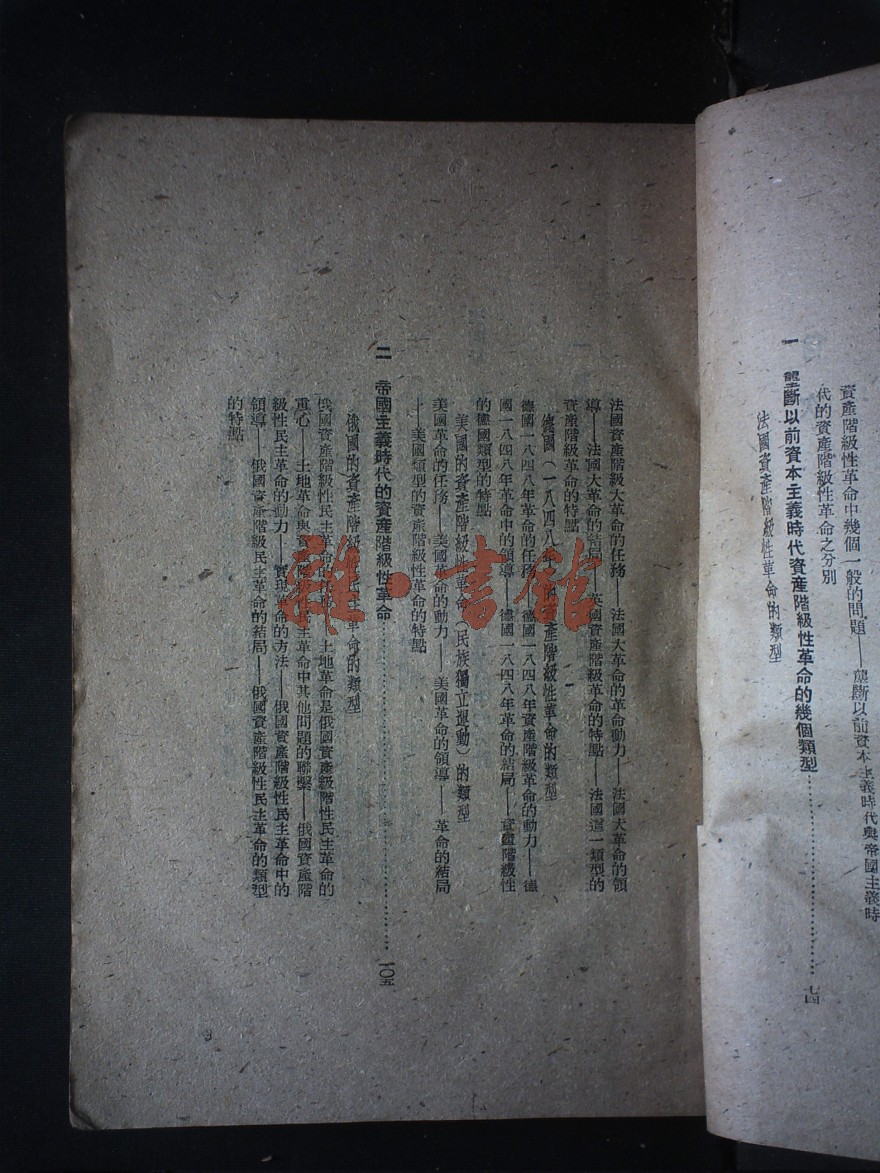 資產階級性革命中幾個一般的問題——壟斷以前資本主義時代與帝國主義時
代的資產階級性革命之分別
一 壟斷以前資本主義時代資產階級性革命的幾個類型……七四
法國資產階級性革命的類型
法國資產階級大革命的任務——法國大革命的革命動力——法國大革命的領
導——法國大革命的結局——英國資產階級革命的特點——法國這一類型的
資產階級革命的特點
德國(一八四八年)的資產階級性革命的類型
德國一八四八年革命的任務——德國一八四八年資產階級革命的動力——德
國一八四八年革命中的領導——德國一八四八年革命的結局——資產階級性
的德國類型的特點
美國的資產階級性革命(民族獨立運動)的類型
美國革命的任務——美國革命的動力——美國革命的領導——革命的結局
——美國類型的資產階級性革命的特點
二 帝國主義時代的資產階級性革命……一〇五
俄國的資產階級性民主革命的類型
俄國資產階級性民主革命的任務——土地革命是俄國資產級階性民主革命的
重心——土地革命與資產階級性民主革命中其他問題的聯繫——俄國資產階
級性民主革命的動力——實現革命的方法——俄國資產階級性民主革命中的
領導——俄國資產階級民主革命的結局——俄國資產階級性民主革命的類型
的特點
9
雜·書館